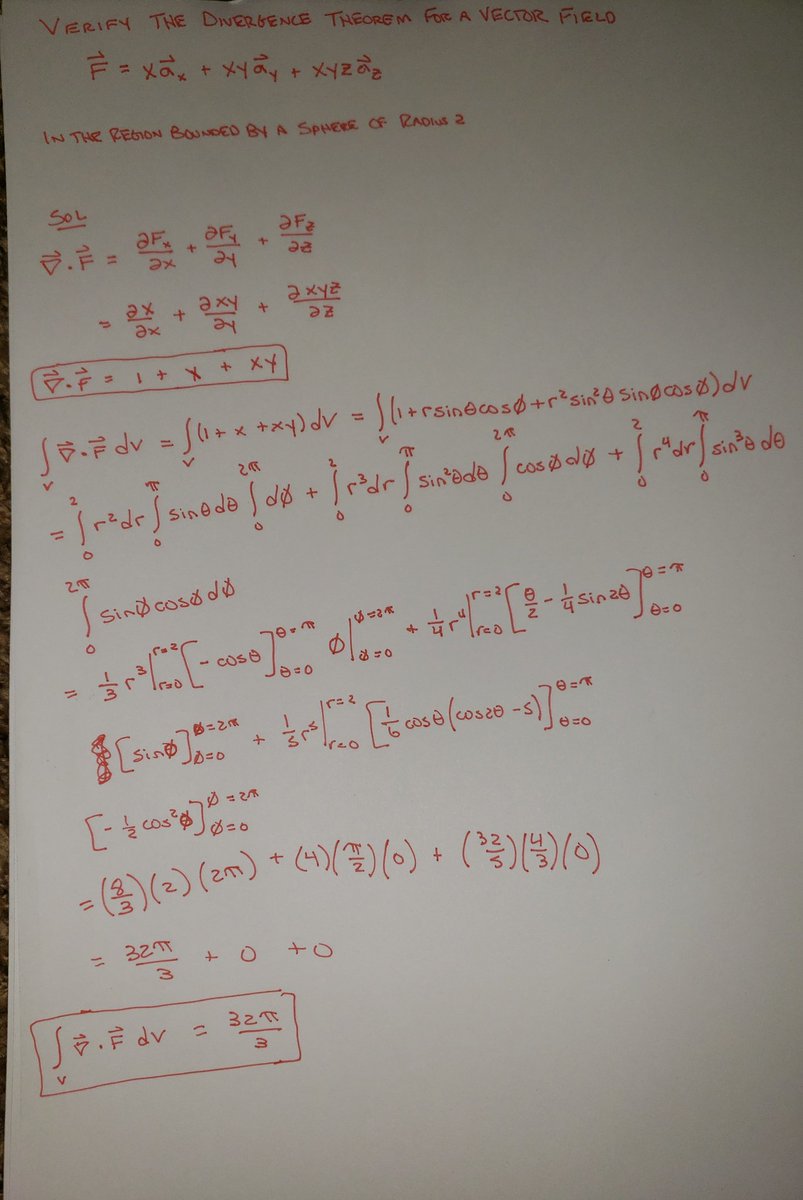 VERIFY THE DIVERGENCE THEOREM FOR A VECTOR FIELD
F⃗ = xa⃗ₓ + xya⃗_y + xyza⃗_z
IN THE REGION BOUNDED BY A SPHERE OF RADIUS 2
SOL
∇⃗·F⃗ = ∂Fₓ/∂x + ∂F_y/∂y + ∂F_z/∂z
= ∂x/∂x + ∂xy/∂y + ∂xyz/∂z
∇⃗·F⃗ = 1 + x + xy
∫_v ∇⃗·F⃗ dv = ∫_v (1 + x + xy) dv = ∫_v (1 + r sinθ cosø + r² sin²θ sinø cosø) dv
= ∫₀² r² dr ∫₀^π sinθ dθ ∫₀^2π dø + ∫₀² r³ dr ∫₀^π sin²θ dθ ∫₀^2π cosø dø + ∫₀² r⁴ dr ∫₀^π sin³θ dθ
∫₀^2π sinø cosø dø
= 1/3 r³ |_{r=0}^{r=2} [-cosθ]_{θ=0}^{θ=π} ø |_{ø=0}^{ø=2π} + 1/4 r⁴ |_{r=0}^{r=2} [θ/2 - 1/4 sin2θ]_{θ=0}^{θ=π}
[sinø]_{ø=0}^{ø=2π} + 1/5 r⁵ |_{r=0}^{r=2} [1/6 cosθ (cos2θ - 5)]_{θ=0}^{θ=π}
[-1/2 cos²ø]_{ø=0}^{ø=2π}
= (8/3)(2)(2π) + (4)(π/2)(0) + (32/5)(4/3)(0)
= 32π/3 + 0 + 0
∫_v ∇⃗·F⃗ dv = 32π/3